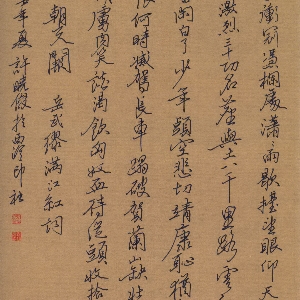 衝冠憑欄處瀟瀟雨歇擡望眼仰天
激烈三十功名塵與土八千里路雲
閒白了少年頭空悲切靖康恥猶
恨何時滅駕長車踏破賀蘭山缺壯
虜肉笑談渴飲匈奴血待從頭收拾
朝天闕 岳武穆滿江紅詞
年夏許曉俊於西泠印社